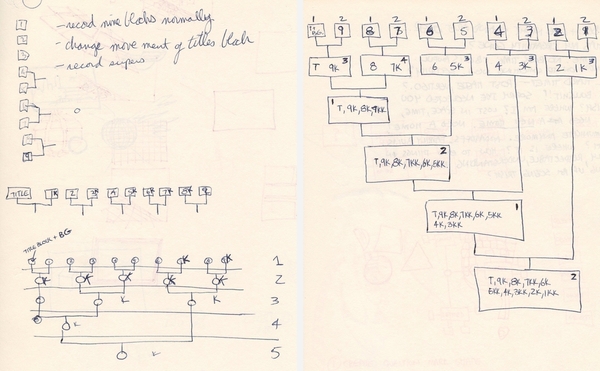 - record nine blocks normally
- change movement of titles block
- record supers
TITLE 2
TITLE BLOCK + BG
K K
1
K K K K K
2
K K
3
K
4
K
5
1 2 1 2 1 2 1 2 1 2
9 8 7 6 5 4 3 2 1
T 9K 3 8 7K 4 6 5K 3 4 3K 3 2 1K 3
1 T, 9K, 8K, 7KK
2
T, 9K, 8K, 7KK, 6K, 5KK
1
T, 9K, 8K, 7KK, 6K, 5KK
4K, 3KK
2
T, 9K, 8K, 7KK, 6K
5KK, 4K, 3KK, 2K, 1KK